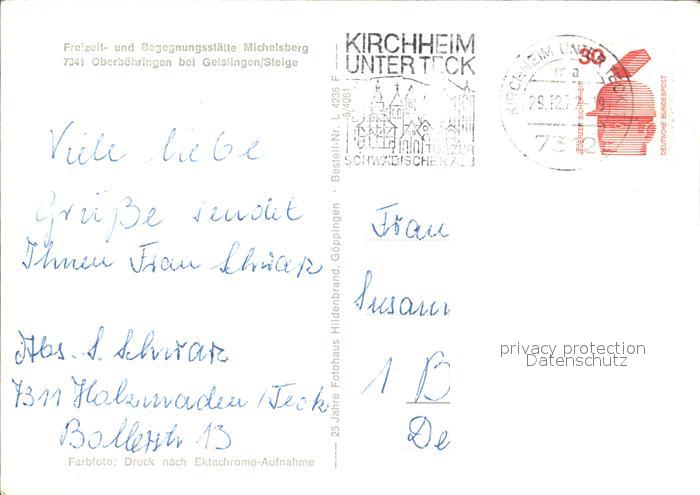 Freizeit- und Begegnungsstätte Michelsberg
7341 Oberböhringen bei Geislingen/Steige
KIRCHHEIM
UNTER TECK
SCHWÄBISCHEN ALB
KIRCHHEIM UNTER TECK
29.12.7
30
JEDERZEIT SICHERHEIT
DEUTSCHE BUNDESPOST
Viele liebe
Grüße sendet
Ihnen Frau Schwarz
Abs. S. Schwarz
7311 Holzmaden/Teck
Bollerstr 13
Farbfoto: Druck nach Ektachrome-Aufnahme
25 Jahre Fotohaus Hildenbrand, Göppingen · Bestell-Nr. L 4236 F
5/4061
Frau
Susann
1 B
De
privacy protection
Datenschutz